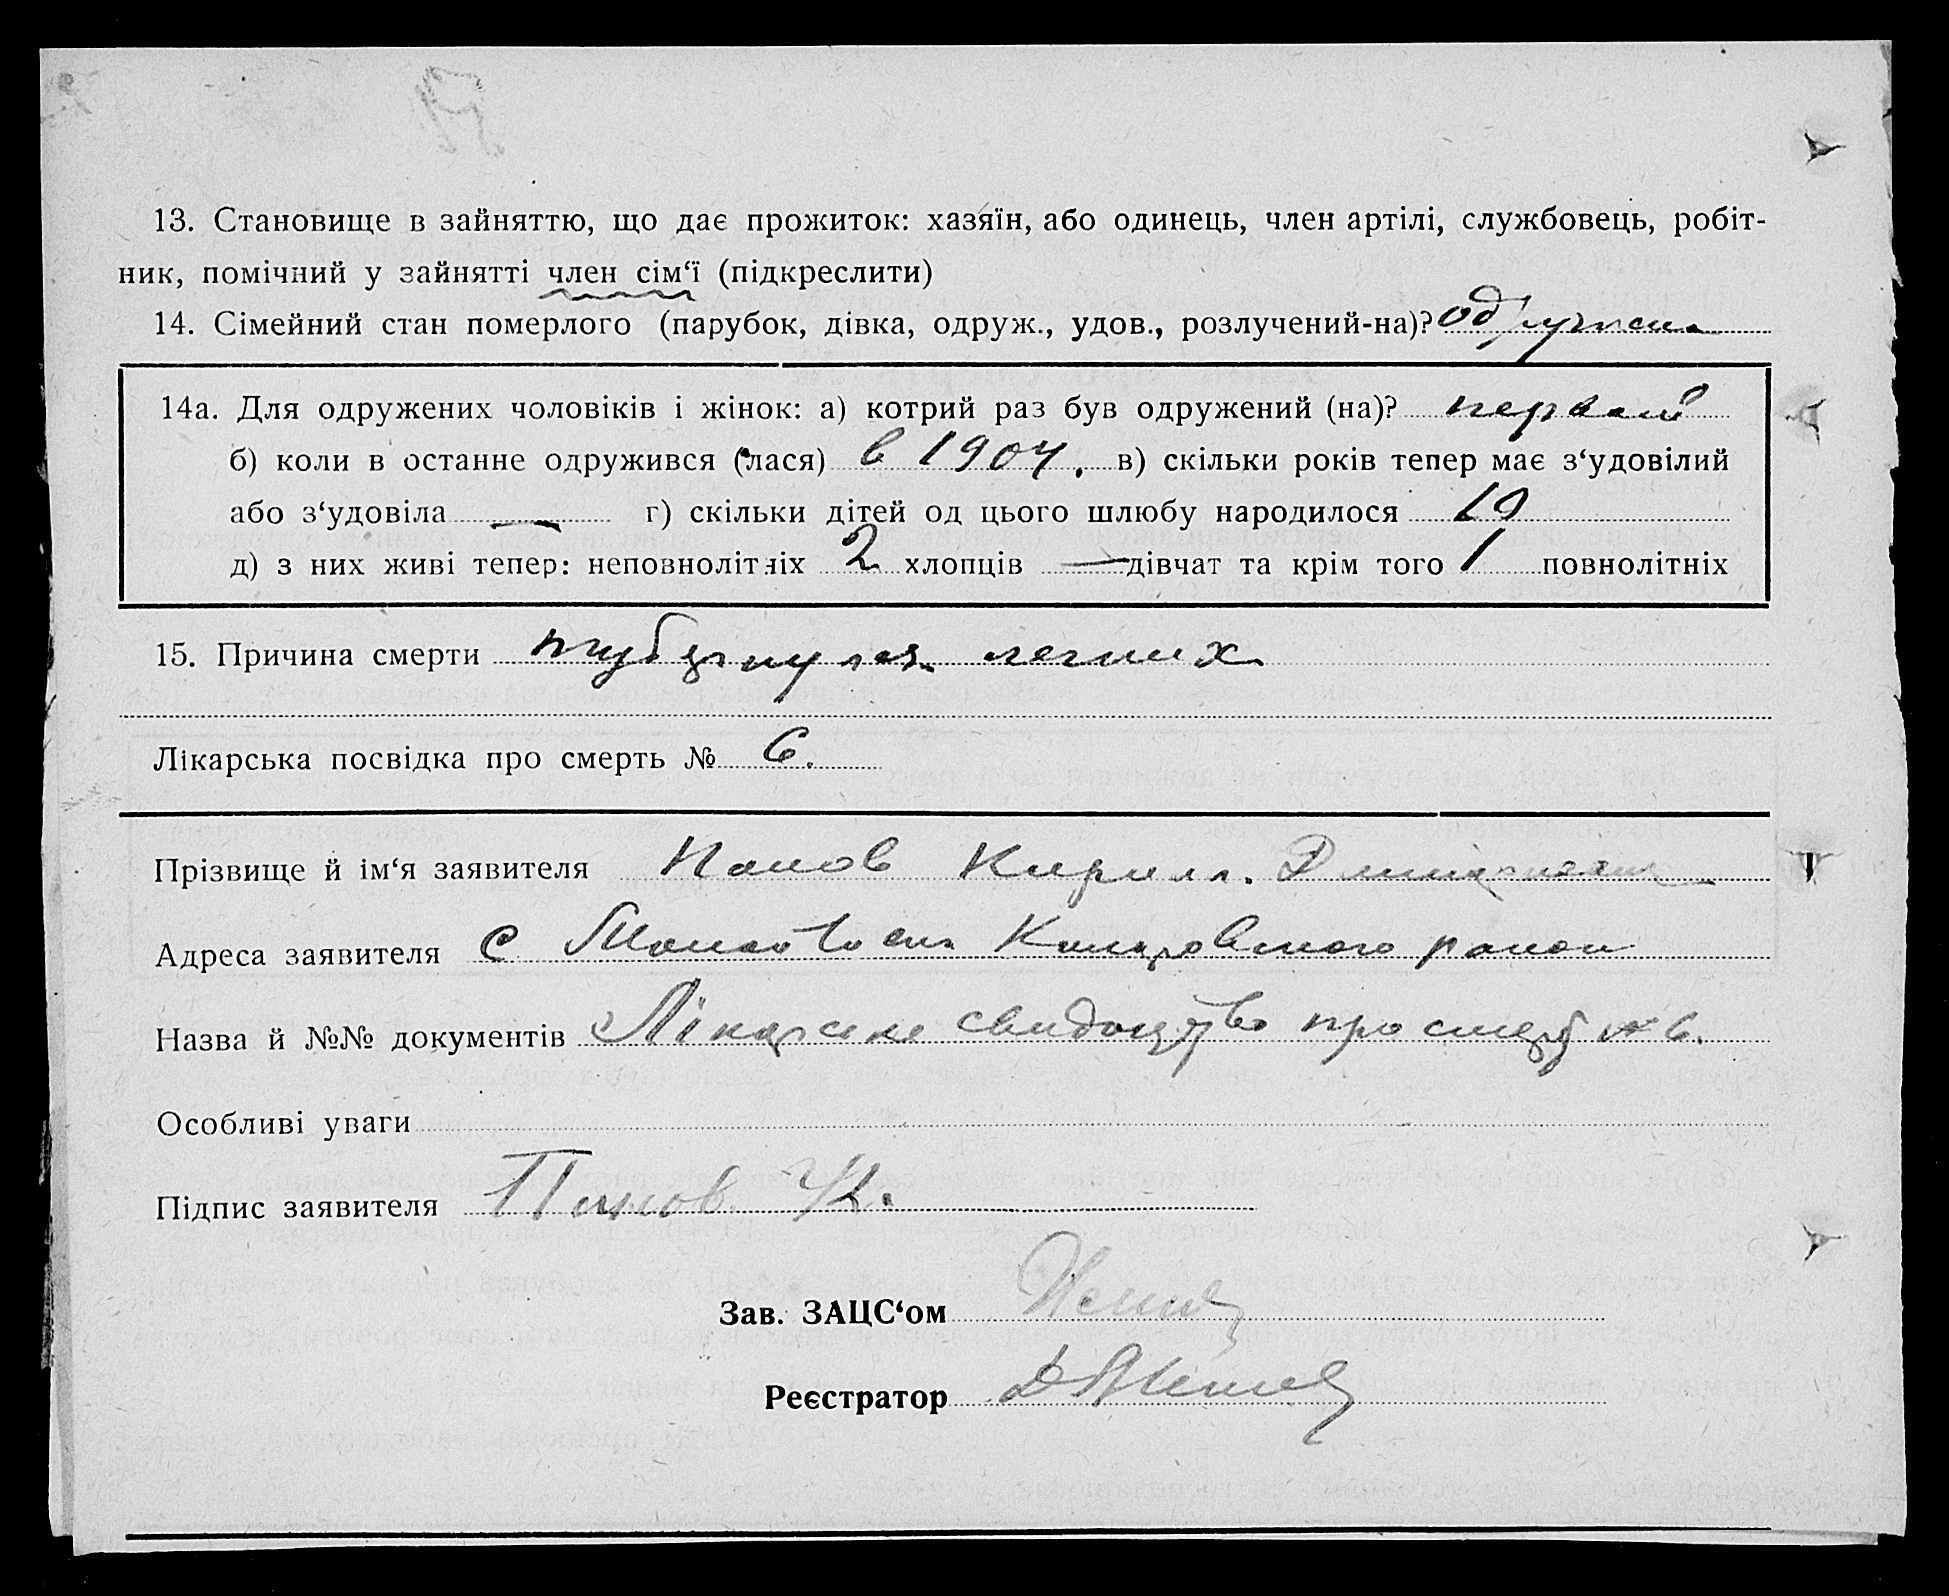 13. Становище в зайняттю, що дає прожиток: хазяїн, або одинець, член артілі, службовець, робіт-
ник, помічний у зайнятті член сім‘ї (підкреслити)
14. Сімейний стан померлого (парубок, дівка, одруж., удов., розлучений-на)?
14а. Для одружених чоловіків і жінок: а) котрий раз був одружений (на)? первый
б) коли в останне одружився (лася) в 1904. в) скільки років тепер має з‘удовілий
або з‘удовіла — г) скільки дітей од цього шлюбу народилося 10
д) з них живі тепер: неповнолітніх 2 хлопців — дівчат та крім того 1 повнолітніх
15. Причина смерти туберкулез легких
Лікарська посвідка про смерть № 6.
Прізвище й ім‘я заявителя Кирилл.
Адреса заявителя с района
Назва й №№ документів Лікарське свидоцтво про смерть № 6.
Особливі уваги
Підпис заявителя К.
Зав. ЗАЦС‘ом
Реєстратор